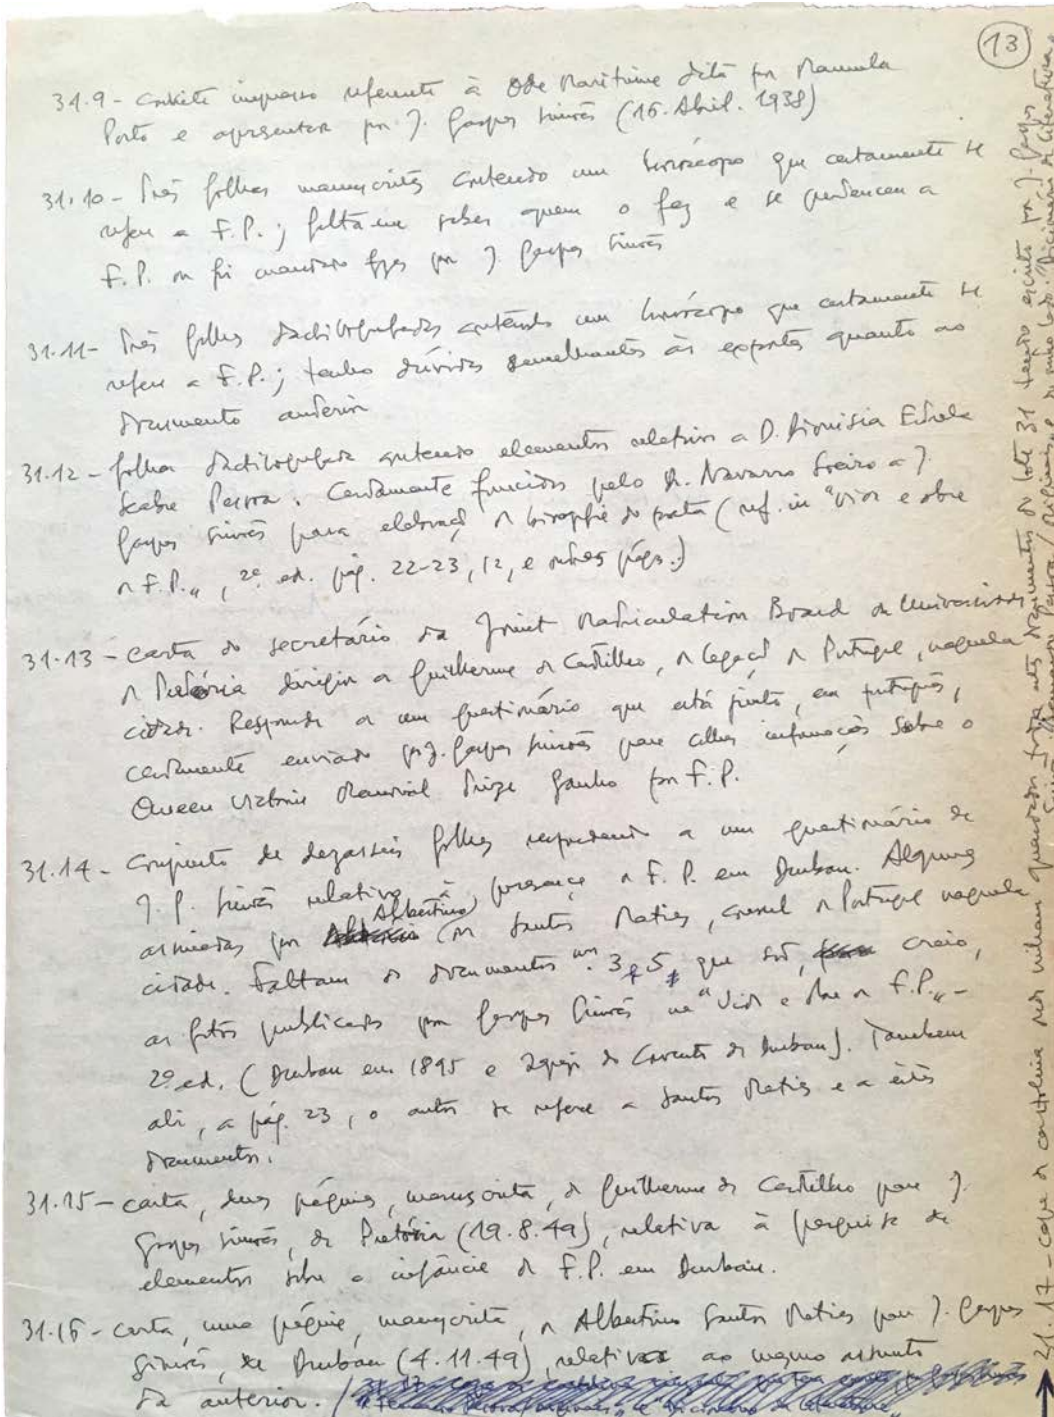 13
31.9 - convite impresso referente à Ode Marítima dita por Manuela
Porto e apresentada por J. Gaspar Simões (16. Abril. 1938)
31.10 - Três folhas manuscritas contendo um horóscopo que certamente se
refere a F.P.; falta-me saber quem o fez e se pertenceu a
F.P. ou foi mandado fazer por J. Gaspar Simões
31.11 - Três folhas dactilografadas contendo um horóscopo que certamente se
refere a F.P.; tenho dúvidas semelhantes às expostas quanto ao
documento anterior
31.12 - folha dactilografada contendo elementos relativos a D. Dionísia Estrela
Seabra Pessoa. Certamente fornecidos pelo Dr. Navarro Soeiro a J.
Gaspar Simões para elaboração da biografia do poeta (ref. in "Vida e obra
de F.P.", 2ª ed. pág. 22-23, 12, e outras págs.)
31.13 - carta do secretário da Joint Matriculation Board da Universidade
de Pretória dirigida a Guilherme de Castilho, da Legação de Portugal, naquela
cidade. Responde a um questionário que está junto, em português,
certamente enviado por J. Gaspar Simões para colher informações sobre o
Queen Victoria Memorial Prize ganho por F.P.
31.14 - Conjunto de dezasseis folhas respondendo a um questionário de
J. G. Simões relativo à presença de F.P. em Durban. Algumas
assinadas por Albertino dos Santos Matias, consul de Portugal naquela
cidade. Faltam os documentos nos. 3 e 5, que são, creio,
as fotos publicadas por Gaspar Simões na "Vida e obra de F.P." -
2ª ed. (Durban em 1895 e Igreja do Convento de Durban). Também
ali, a pág. 23, o autor se refere a Santos Matias e a estes
documentos.
31.15 - carta, duas páginas, manuscrita, de Guilherme de Castilho para J.
Gaspar Simões, de Pretória (19.8.49), relativa à pesquisa de
elementos sobre a infância de F.P. em Durban.
31.16 - carta, uma página, manuscrita, de Albertino Santos Matias para J. Gaspar
Simões, de Durban (4.11.49), relativa ao mesmo assunto
da anterior.
→ 31.17 - capa de cartolina onde vinham guardados todos estes documentos do lote 31 tendo escrito por J. Gaspar
Simões "Fernando Pessoa / Originais e no outro lado: "Dicionário de Literatura"